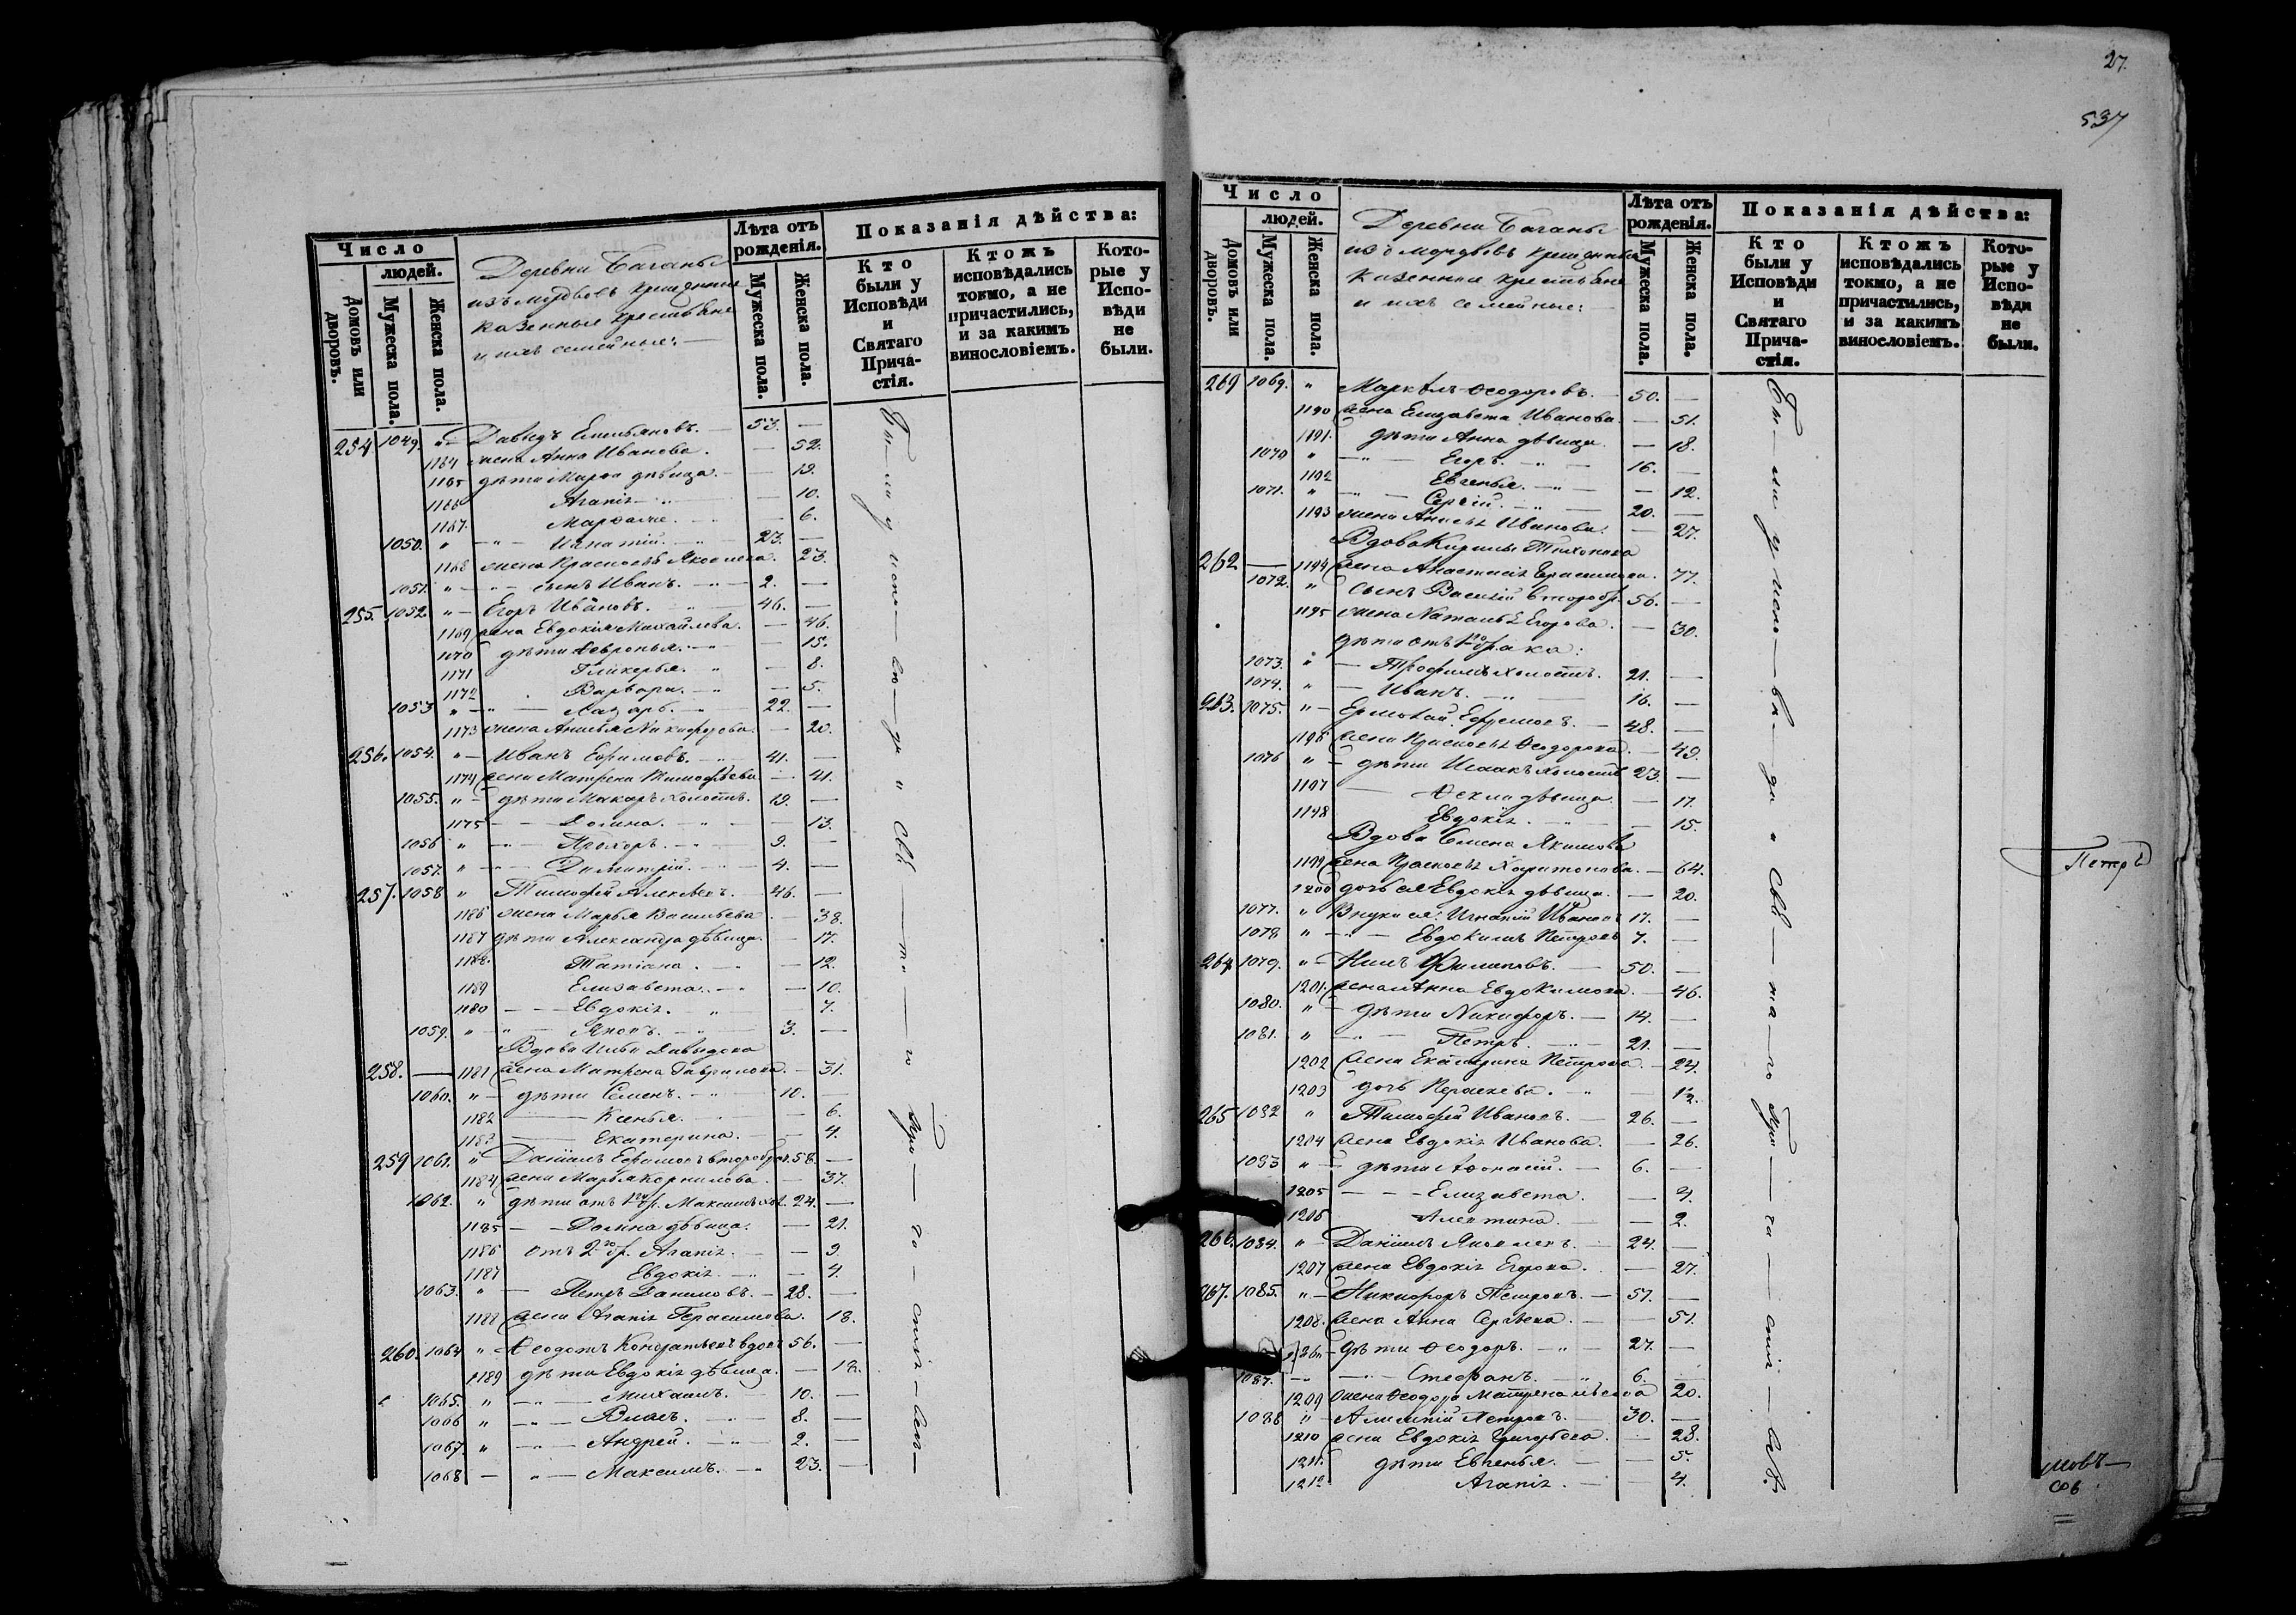 27.
537
Число
людей.
Домовъ или дворовъ.
Мужеска пола.
Женска пола.
Деревни Баганы
изъ мордвовъ крещеные
казенные крестьяне
и ихъ семейные:
Лѣта отъ рожденія.
Мужеска пола.
Женска пола.
Показанія дѣйства:
Кто были у Исповѣди и Святаго Причастія.
Ктожъ исповѣдались токмо, а не причастились, и за какимъ винословіемъ.
Которые у Исповѣди не были.
254 1049 " Давыдъ Емельяновъ. 53. —
1164 жена Анна Иванова. — 52.
1165 дѣти Марѳа дѣвица. — 19.
1166 Агапіа — 10.
1167. — 6.
1050. " Игнатій. 23. —
1168 жена Яковлева. 23.
1051. " сынъ Иванъ. 2. —
255. 1052 " Егоръ Ивановъ. 46. —
1169 жена Евдокія Михайлова. — 46.
1170 дѣти Ѳевронья. — 15.
1171 Гликерья. — 8.
1172 Варвара. — 5.
1053 " Лазарь. 22. —
1173 жена Анисья Никифорова. — 20.
256. 1054. " Иванъ Ефимовъ. 41. —
1174 жена Матрена Тимоѳѣева. — 41.
1055. " дѣти Макаръ холостъ. 19. —
1175 Домна. — 13.
1056 " Прохоръ. 9. —
1057. " Димитрій. 4. —
257. 1058 " Тимофей Алексѣевъ. 46. —
1186 жена Марья Васильева — 38.
1187 дѣти Александра дѣвица. — 17.
1188. Татіана. — 12.
1189 Елизавета. — 10.
1180 Евдокіа. " — 7.
1059. " 3. —
Вдова Давыдова
258. — 1181 жена Матрена Гаврилова. — 31.
1060. " дѣти Семенъ. 10. —
1182 Ксенья. — 6.
1183 Екатерина. — 4.
259 1061. " Даніилъ Ефимовъ второбрач. 58. —
1184 жена Марья Корнилова. — 37.
1062. " дѣти отъ 1го бр. Максимъ хол. 24. —
1185 Домна дѣвица. — 21.
1186 отъ 2го бр. Агапіа. — 9.
1187 Евдокіа. — 4.
1063. " Петръ Даниловъ. 28. —
1188 жена Агапіа Герасимова. 18.
260. 1064 " Ѳеодотъ Кондратьевъ вдовъ 56. —
1189 дѣти Евдокіа дѣвица. — 18.
1065. " Михаилъ. 10. —
1066 " Власъ. 8. —
1067. " Андрей. 2. —
1068 — " Максимъ. 23. —
Бы—ли у испо—вѣ—ди и Свя—та—го При—ча—стія—
Число
людей.
Домовъ или дворовъ.
Мужеска пола.
Женска пола.
Деревни Баганы
изъ мордвовъ крещеные
казенные крестьяне
и ихъ семейные:
Лѣта отъ рожденія.
Мужеска пола.
Женска пола.
Показанія дѣйства:
Кто были у Исповѣди и Святаго Причастія.
Ктожъ исповѣдались токмо, а не причастились, и за какимъ винословіемъ.
Которые у Исповѣди не были.
269 1069. " Маркелъ Ѳеодоровъ. 50. —
1190 жена Елизавета Иванова. — 51.
1191. дѣти Анна дѣвица. — 18.
1070 " Егоръ. 16. —
1192 Евгенья. — 12.
1071. " Сергій. 20. —
1193 жена Иванова. — 27.
Вдова Кирилы Тихонова
262 — 1194 жена Анастасіа Герасимова. 77.
1072. " сынъ Василій второбр. 56. —
1195 жена Наталья Егорова. — 30.
дѣти отъ 1го брака:
1073. " Трофимъ холостъ. 21. —
1074. " Иванъ. 16. —
263. 1075. " Ермолай Ефремовъ. 48. —
1196 жена Ѳеодорова. — 49.
1076 " дѣти Исаакъ холостъ 23. —
1197 Ѳекла дѣвица. — 17.
1198 Евдокіа. — 15.
Вдова Семена Якимова
1199 жена Харитонова. — 64.
1200 дочь ея Евдокіа дѣвица. — 20.
1077. " Внуки ея: Игнатій Ивановъ 17. —
1078 " Евдокимъ Петровъ 7. —
264. 1079. " Нилъ Филиповъ. 50. —
1201. жена Анна Евдокимова. — 46.
1080. " дѣти Никифоръ. 14. —
1081. " Петръ. 21. —
1202 жена Екатерина Петрова. — 24.
1203 дочь Параскева. — 1/2.
265 1082 " Тимофей Ивановъ. 26. —
1204 жена Евдокіа Иванова. — 26.
1083 " дѣти Аѳонасій. 6. —
1205 Елизавета. — 4.
1206 — 2.
266. 1084. " Даніилъ Яковлевъ. 24. —
1207 жена Евдокіа Егорова. — 27.
267. 1085. " Никифоръ Петровъ. 51. —
1208. жена Анна Сергѣева. — 51.
дѣти Ѳеодоръ. 27. —
1087. Стефанъ. 6. —
1209 жена Ѳеодора Матрена 20.
1088 " Петровъ. 30. —
1210 жена Евдокіа Григорьева. — 28.
1211. дѣти Евгенья. — 5.
1212 Агапіа. — 4.
Бы—ли у испо—вѣ—ди и Свя—та—го При—ча—стія—
Петръ